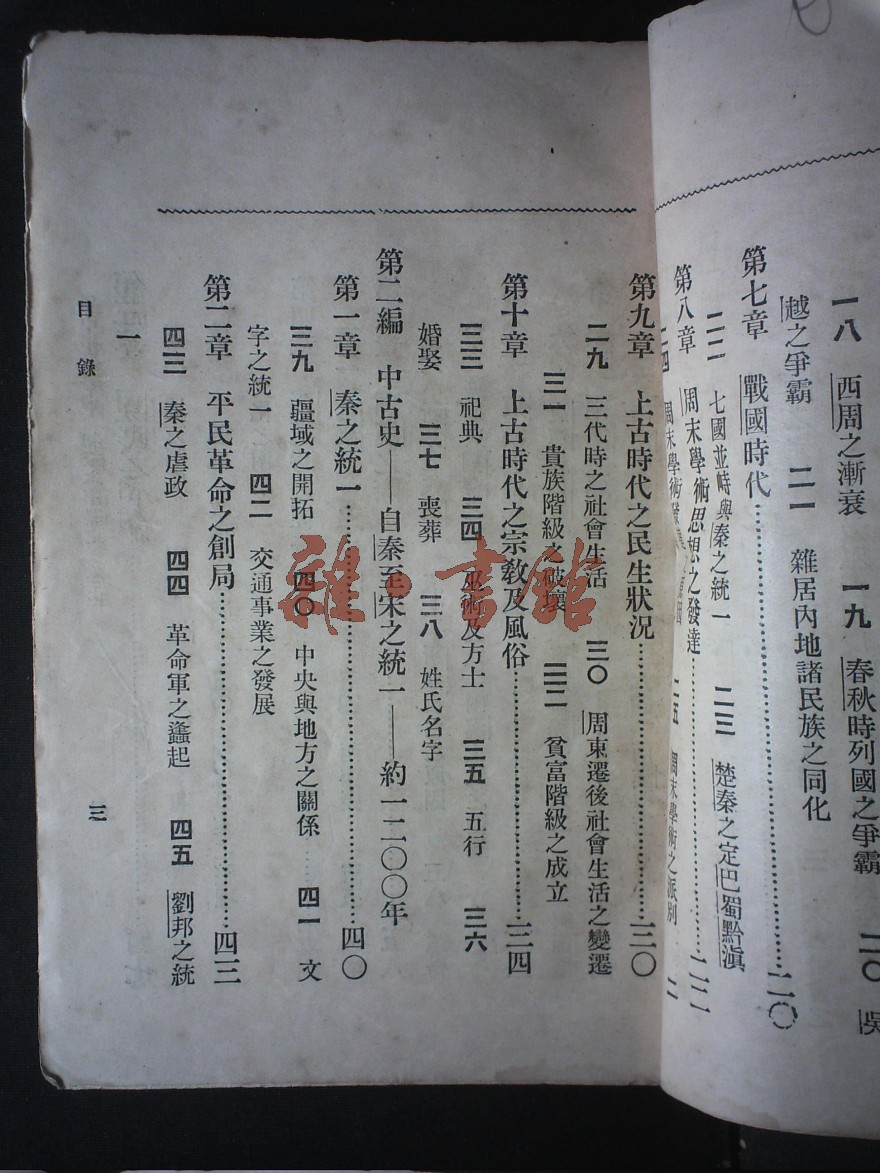 一八 西周之漸衰 一九 春秋時列國之爭霸 二〇 吳
越之爭霸 二一 雜居內地諸民族之同化
第七章 戰國時代 二〇
二二 七國並峙與秦之統一 二三 楚秦之定巴蜀黔滇
第八章 周末學術思想之發達 二二
二四 周末學術 二五 周末學術之派別
第九章 上古時代之民生狀況 三〇
二九 三代時之社會生活 三〇 周東遷後社會生活之變遷
三一 貴族階級之破壞 三二 貧富階級之成立
第十章 上古時代之宗教及風俗 三四
三三 祀典 三四 巫術及方士 三五 五行 三六
婚娶 三七 喪葬 三八 姓氏名字
第二編 中古史——自秦至宋之統一——約一二〇〇年
第一章 秦之統一 四〇
三九 疆域之開拓 四〇 中央與地方之關係 四一 文
字之統一 四二 交通事業之發展
第二章 平民革命之創局 四三
四三 秦之虐政 四四 革命軍之蠭起 四五 劉邦之統
一
目錄
三
雜·書館